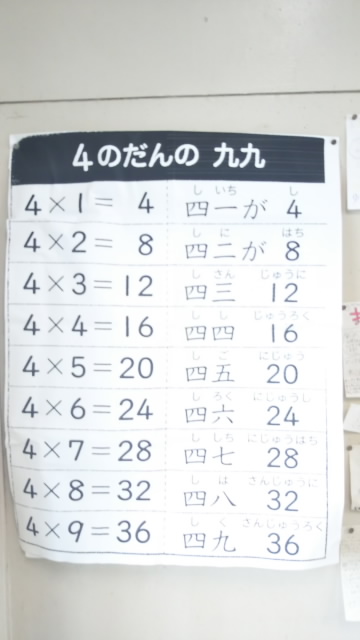 4のだんの 九九
4×1= 4 四一が 4
し いち し
4×2= 8 四二が 8
し に はち
4×3=12 四三 12
し さん じゅうに
4×4=16 四四 16
し し じゅうろく
4×5=20 四五 20
し ご にじゅう
4×6=24 四六 24
し ろく にじゅうし
4×7=28 四七 28
し しち にじゅうはち
4×8=32 四八 32
し は さんじゅうに
4×9=36 四九 36
し く さんじゅうろく